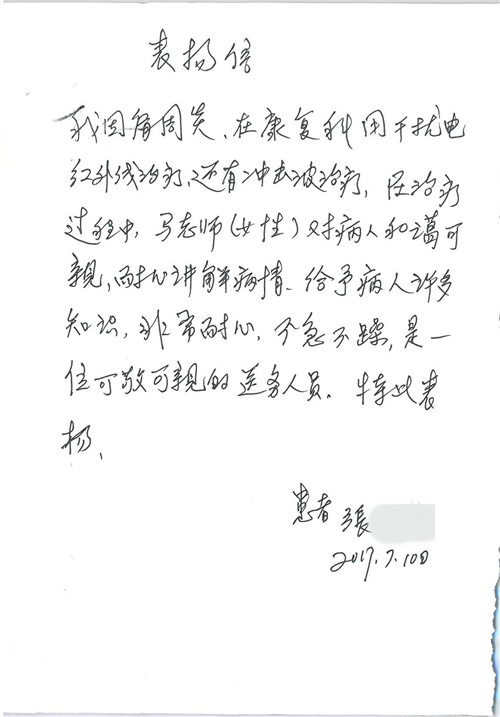 表扬信
我因肩周炎,在康复科用干扰电
红外线治疗,还有冲击波治疗,在治疗
过程中,马老师(女性)对病人和蔼可
亲,耐心讲解病情、给予病人许多
知识,非常耐心,不急不躁,是一
位可敬可亲的医务人员。特此表
扬,
患者 張
2017.7.10日